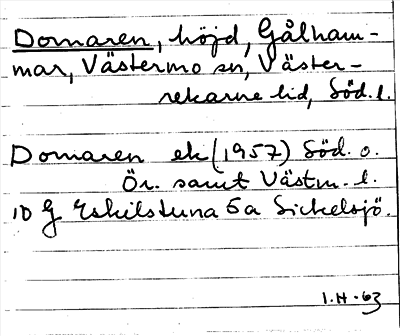 Domaren, höjd, Gålham-
mar, Västermo sn, Väster-
rekarne hd, Söd. l.
Domaren ek (1957) Söd. o.
Ör. samt Västm. l.
10 G Eskilstuna 5a Sickelsjö.
I.H-63